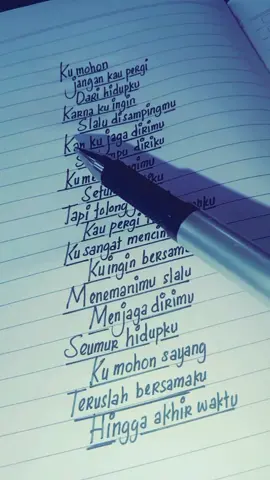 Ku mohon
jangan kau pergi
Dari hidupku
Karna ku ingin
Slalu disampingmu
Kan ku jaga dirimu
diriku
Tapi tolong
Kau pergi
Ku sangat
Ku ingin bersama
Menemanimu slalu
Menjaga dirimu
Seumur hidupku
Ku mohon sayang
Teruslah bersamaku
Hingga akhir waktu